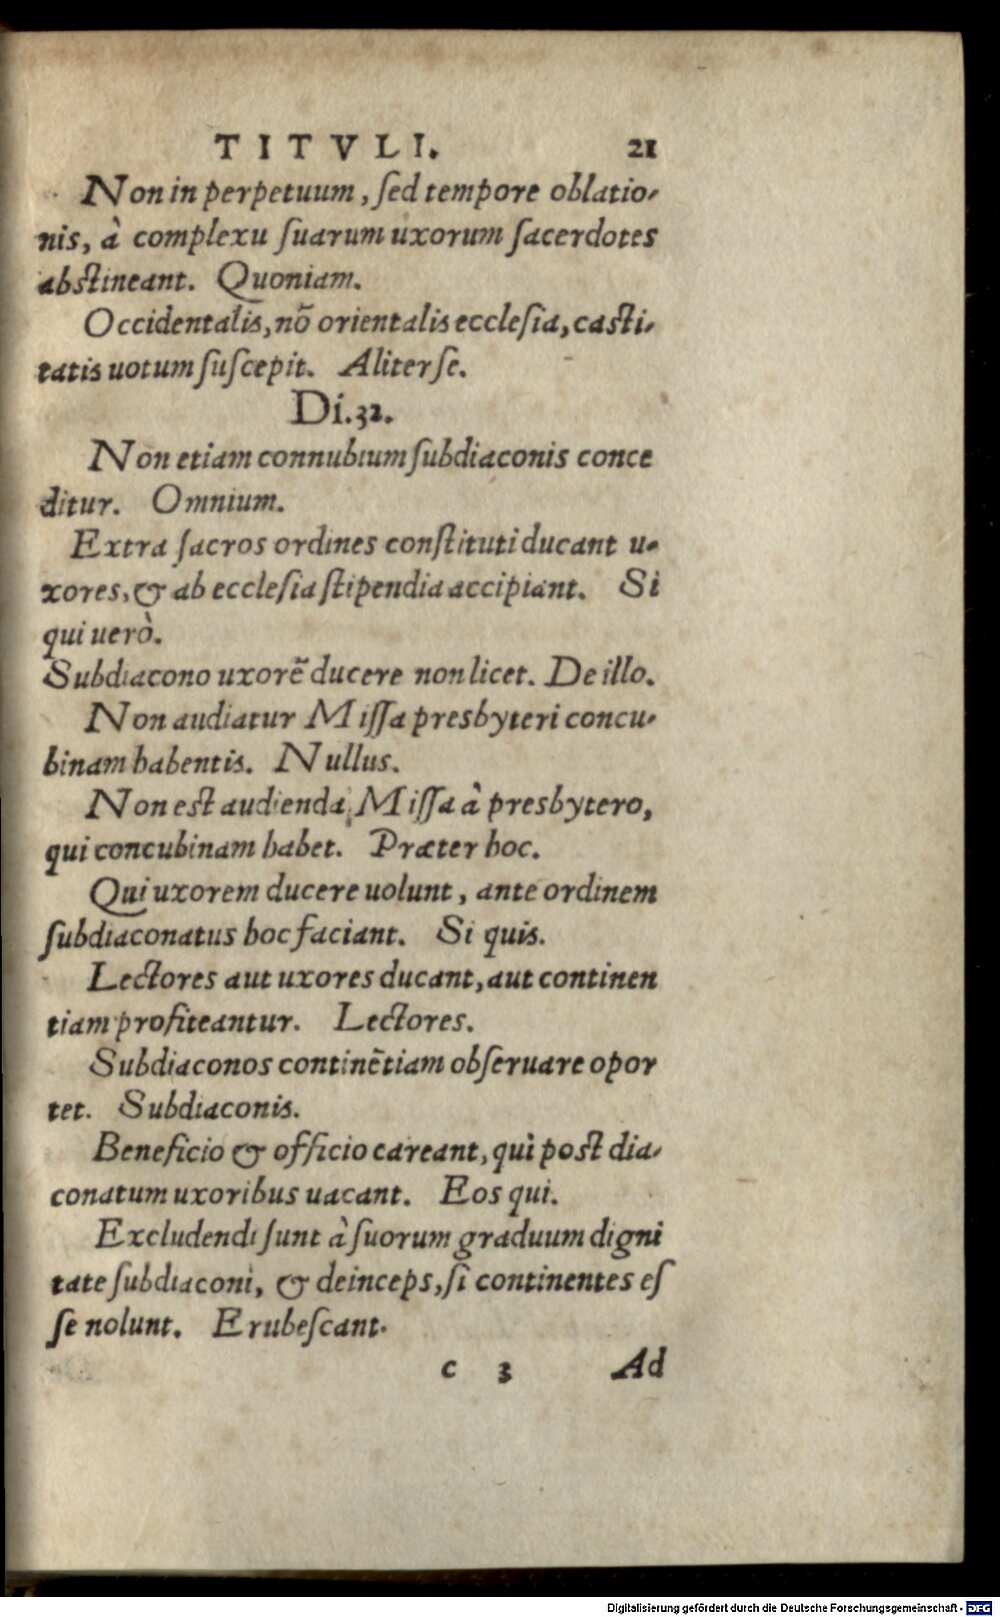 TITVLI. 21
Non in perpetuum, ſed tempore oblatio-
nis, à complexu ſuarum uxorum ſacerdotes
abſtineant. Quoniam.
Occidentalis, nõ orientalis eccleſia, caſti-
tatis uotum ſuſcepit. Aliter ſe.
Di.32.
Non etiam connubium ſubdiaconis conce
ditur. Omnium.
Extra ſacros ordines conſtituti ducant u-
xores, & ab eccleſia ſtipendia accipiant. Si
qui uerò.
Subdiacono uxorẽ ducere non licet. De illo.
Non audiatur Miſſa presbyteri concu-
binam habentis. Nullus.
Non eſt audienda Miſſa à presbytero,
qui concubinam habet. Præter hoc.
Qui uxorem ducere uolunt, ante ordinem
ſubdiaconatus hoc faciant. Si quis.
Lectores aut uxores ducant, aut continen
tiam profiteantur. Lectores.
Subdiaconos continẽtiam obſeruare opor
tet. Subdiaconis.
Beneficio & officio careant, qui poſt dia-
conatum uxoribus uacant. Eos qui.
Excludendi ſunt à ſuorum graduum digni
tate ſubdiaconi, & deinceps, ſi continentes eſ
ſe nolunt. Erubeſcant.
c 3 Ad
Digitalisierung gefördert durch die Deutsche Forschungsgemeinschaft - DFG